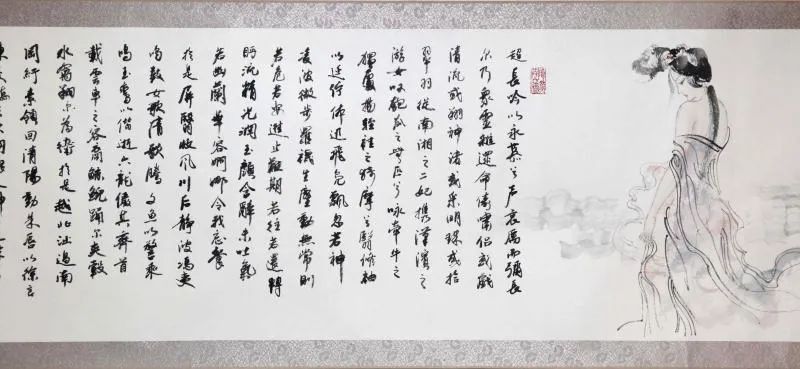 超長吟以永慕兮声哀厲而彌長
尔乃衆靈雜遝命儔嘯侣或戲
清流或翔神渚或采明珠或拾
翠羽從南湘之二妃携漢濱之
游女嘆匏瓜之無匹兮詠牽牛之
獨處揚輕袿之猗靡兮翳修袖
以延佇体迅飛凫飄忽若神
凌波微步羅襪生塵動無常則
若危若安進止難期若往若還轉
眄流精光潤玉顏含辭未吐氣
若幽蘭華容婀娜令我忘餐
於是屏翳收風川后静波馮夷
鳴鼓女媧清歌騰文魚以警乘
鳴玉鸞以偕逝六龍儼其齊首
載雲車之容裔鯨鯢踊而夾轂
水禽翔而為衛於是越北沚過南
岡紆素領回清陽動朱唇以徐言